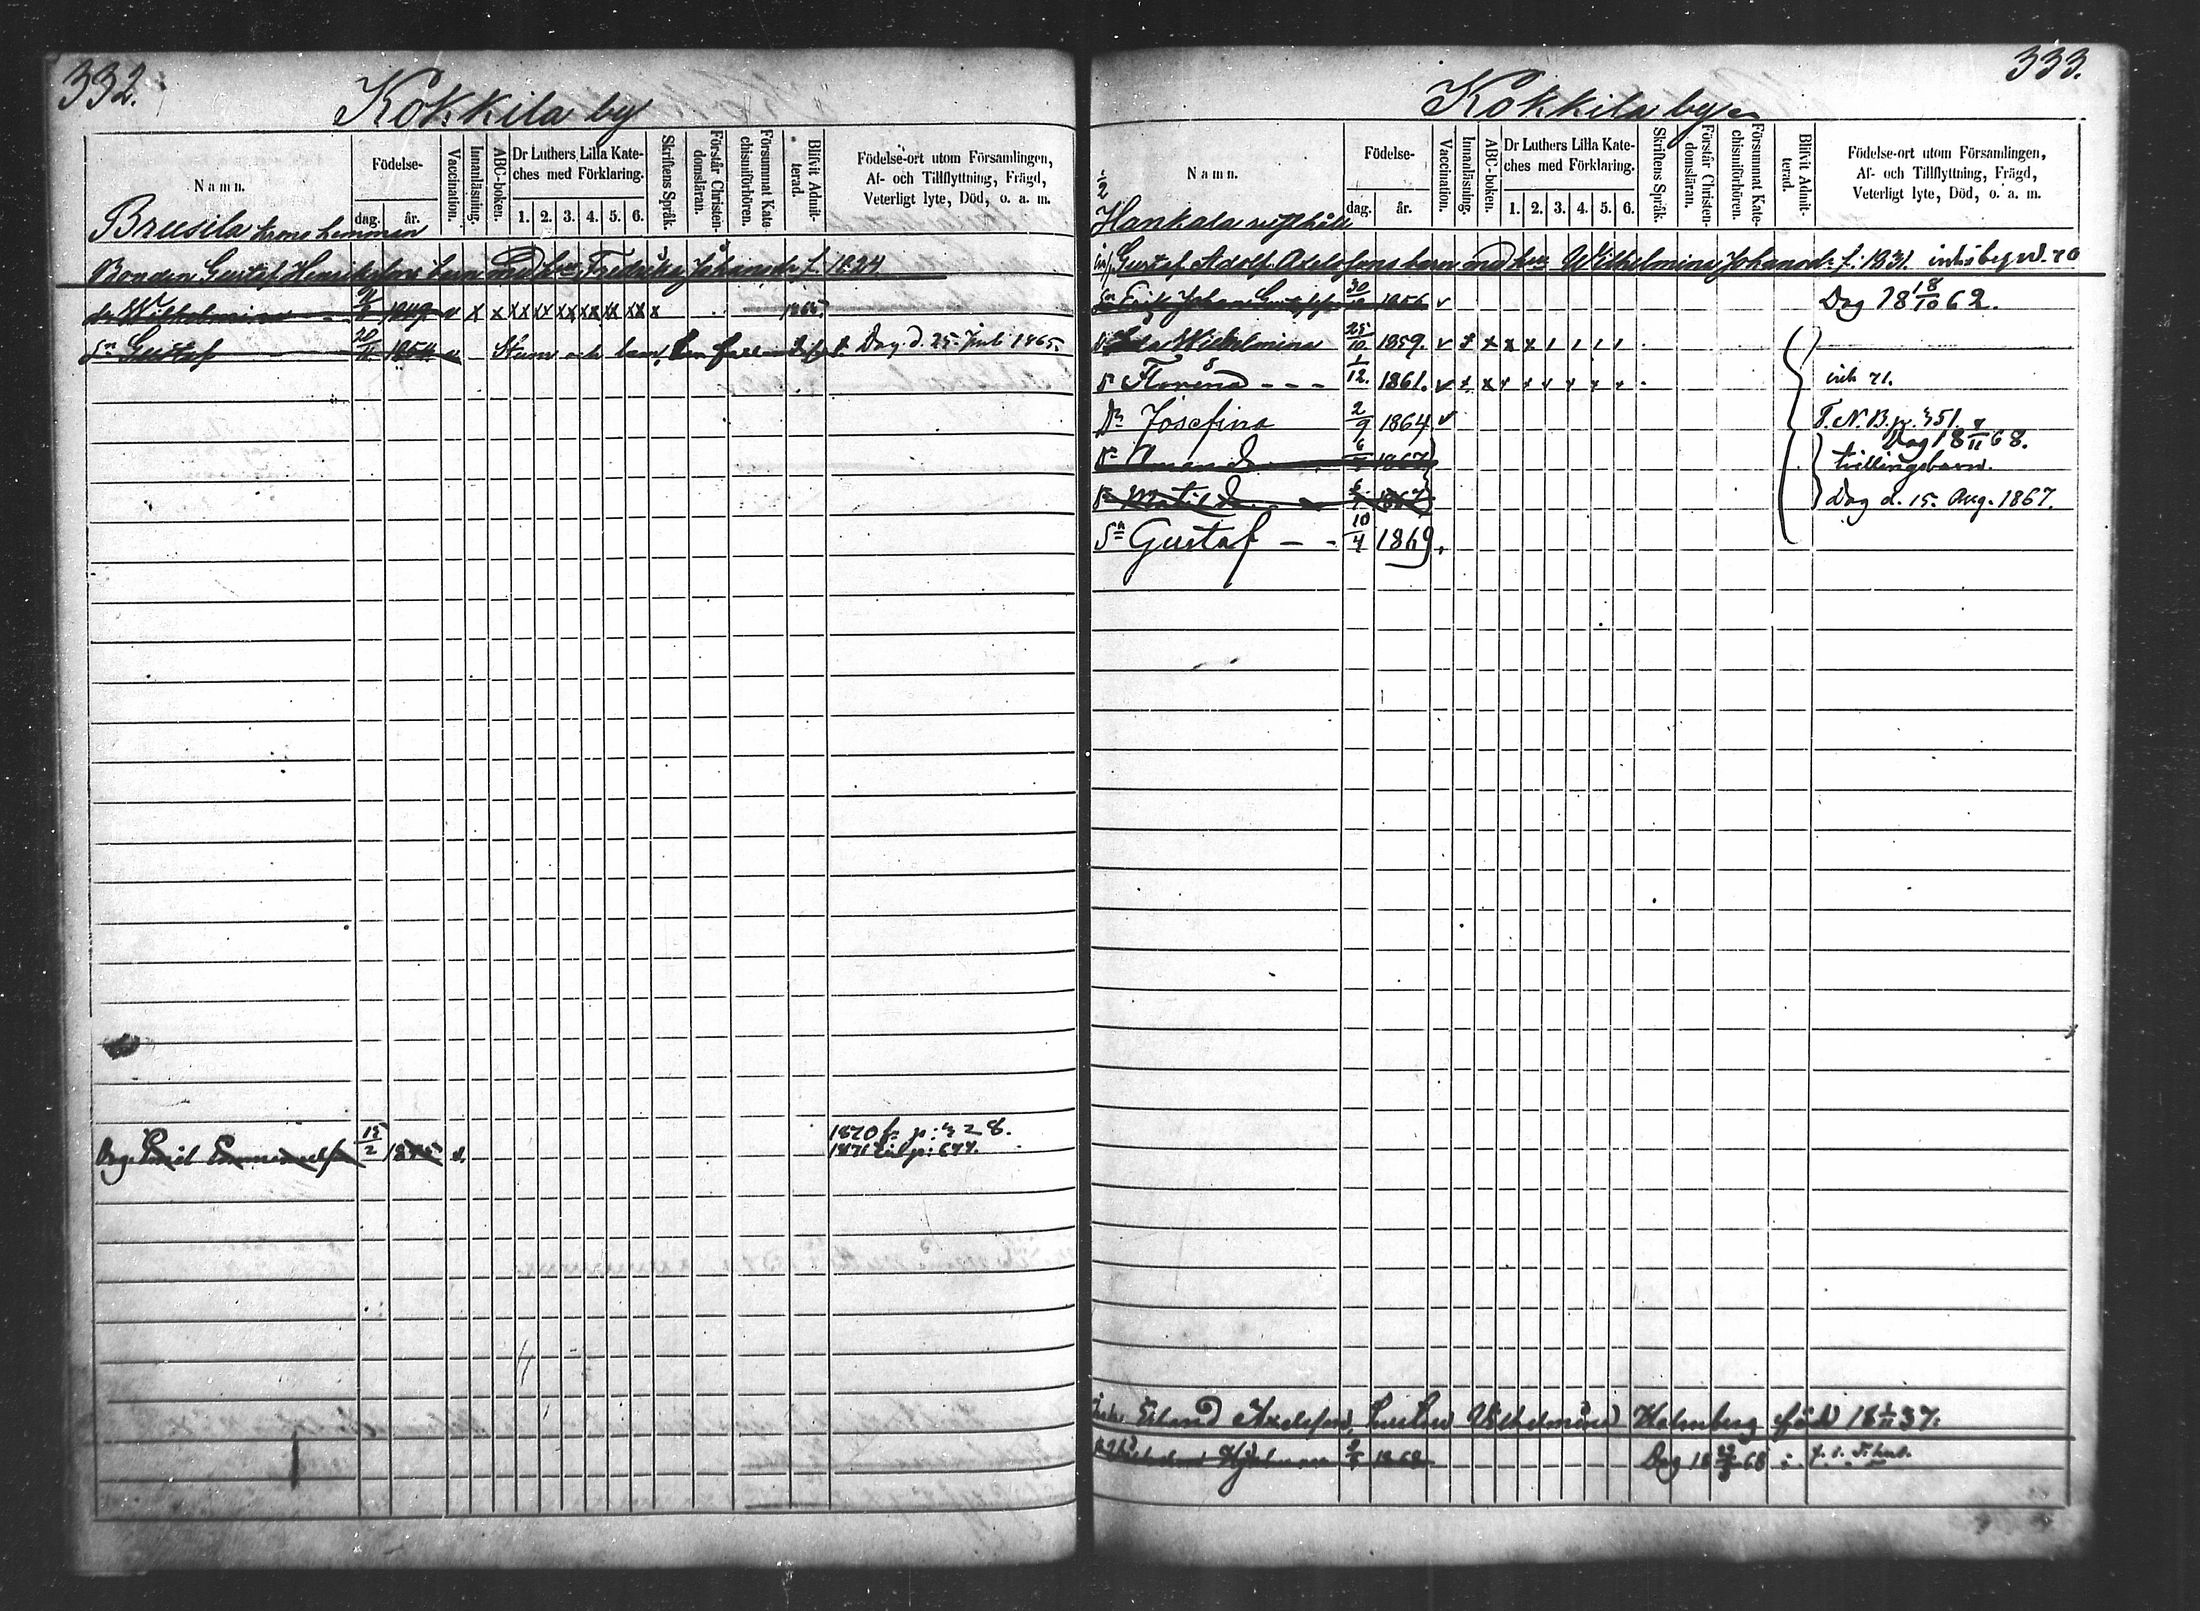 332.
Kokkila by
Namn.
Födelse-
dag. år.
Vaccination.
Innanläsning.
ABC-boken.
Dr Luthers Lilla Kate-
ches med Förklaring.
1. 2. 3. 4. 5. 6.
Skriftens Språk.
Förstår Christen-
domsläran.
Försummat Kate-
chismiförhören.
Blifvit Admit-
terad.
Födelse-ort utom Församlingen,
Af- och Tillflyttning, Frägd,
Veterligt lyte, Död, o. a. m.
Brusila krono hemman
Bonden Gustaf Henrikssons barn med hu Fredrika Johansdr f. 1824
dr Wilhelmina 1849 v x x x x x x x x x 1865
Sn Gustaf 20/11 1854 v Stum och lam Dog d. 25 Juli 1865.
1870 fr p: 428.
Emil Emanuelss 15/2 v. 1871 till p: 677.
333.
Kokkila by
Namn.
Födelse-
dag. år.
Vaccination.
Innanläsning.
ABC-boken.
Dr Luthers Lilla Kate-
ches med Förklaring.
1. 2. 3. 4. 5. 6.
Skriftens Språk.
Förstår Christen-
domsläran.
Försummat Kate-
chismiförhören.
Blifvit Admit-
terad.
Födelse-ort utom Församlingen,
Af- och Tillflyttning, Frägd,
Veterligt lyte, Död, o. a. m.
1/2
Hankala
Gustaf Adolf Adolfssons barn med hu Wilhelmina Johansdr f. 1831.
Sn Erik Johan Gustafss 30/10 1856 v Dog 18 18/10 62.
Wilhelmina 25/10 1859. v x x x
Dr Florena 1/12. 1861. v x x x x x x x x
Dr Josefina 2/9 1864 v
Dog 18 68.
Dr Amanda 6/7 1867 tvillingsbarn.
Dr Matilda 6/7 1867 Dog d. 15 Aug. 1867.
Sn Gustaf 10/4 1869.
Erland Axelsson, Wilhelmina Holmberg född 18 37.
Hjalmar 1868 Dog 18 68